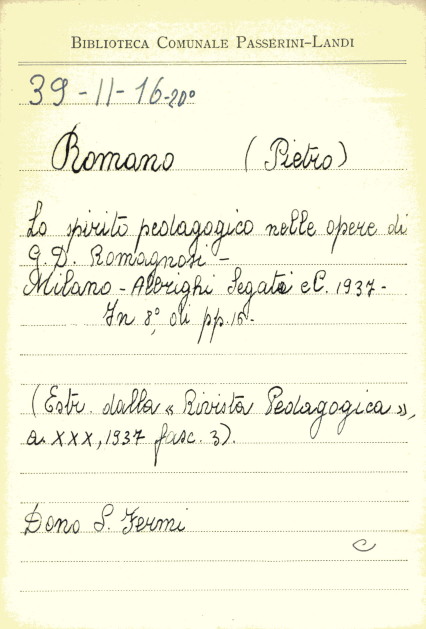 BIBLIOTECA COMUNALE PASSERINI-LANDI
39-11-16-20°
Romano (Pietro)
Lo spirito pedagogico nelle opere di
G. D. Romagnosi -
Milano - Albrighi Segati e C. 1937 -
In 8°, di pp. 16 -
(Estr. dalla « Rivista Pedagogica »,
a. XXX, 1937 fasc. 3).
Dono S. Fermi
C